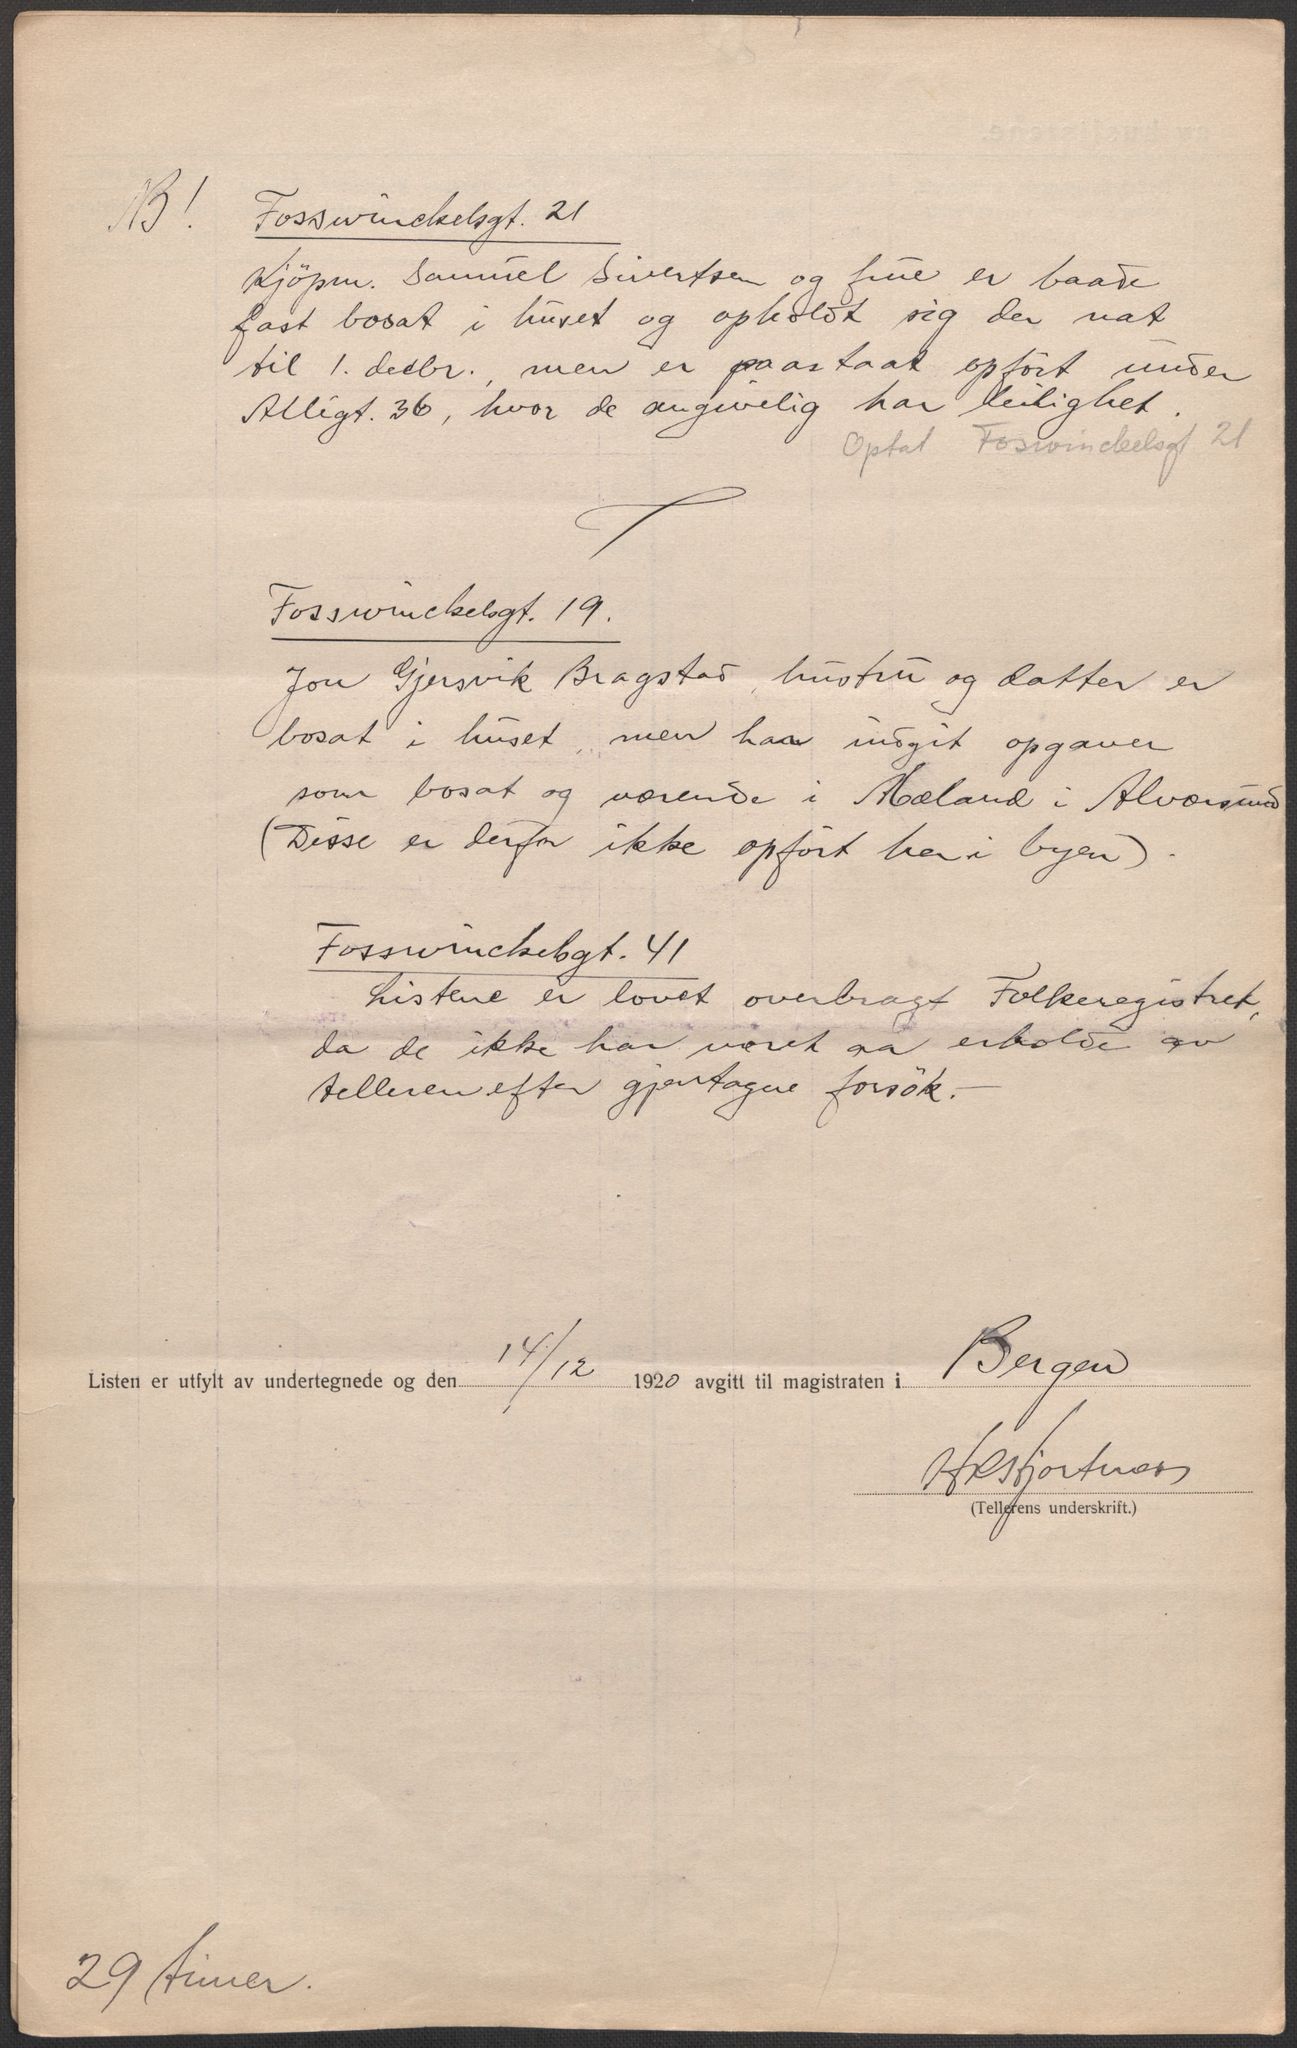 NB! Fosswinckelsgt. 21
Kjöpm. Samuel Sivertsen og frue er baade
fast bosat i huset og opholdt sig der nat
til 1. decbr., men er paastaat opført under
Alligt. 36, hvor de angivelig har leilighet.
Optat Foswinckelsgt 21
Fosswinckelsgt. 19.
Jon Gjersvik Bragstad, hustru og datter er
bosat i huset, men har indgit opgaver
som bosat og værende i Mæland i Alversund
(Disse er derfor ikke opført her i byen).
Fosswinckelsgt. 41
Listene er lovet overbragt Folkeregistret,
da de ikke har været aa erholde av
telleren efter gjentagne forsök. —
Listen er utfylt av undertegnede og den 14/12 1920 avgitt til magistraten i Bergen
(Tellerens underskrift.)
29 timer.